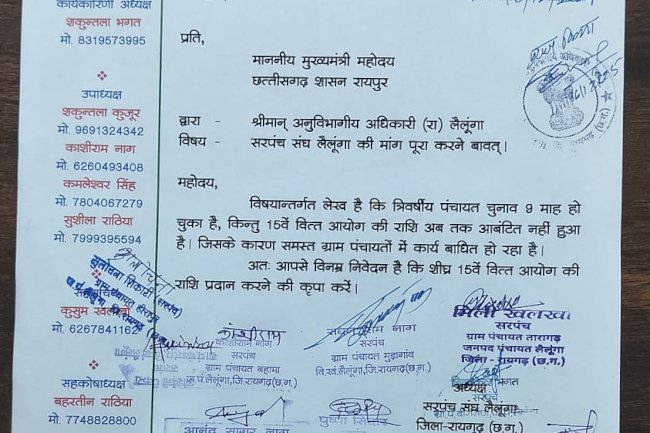 कार्यकारिणी अध्यक्ष
शकुन्तला भगत
मो. 8319573995
उपाध्यक्ष
शकुन्तला कुजूर
मो. 9691324342
काशीराम नाग
मो. 6260493408
कमलेश्वर सिंह
मो. 7804067279
सुशीला राठिया
मो. 7999395594
कुसुम खलखो
मो. 6267841162
सहकोषाध्यक्ष
बहरतीन राठिया
मो. 7748828800
प्रति,
माननीय मुख्यमंत्री महोदय
छत्तीसगढ़ शासन रायपुर
द्वारा - श्रीमान् अनुविभागीय अधिकारी (रा) लैलूंगा
विषय - सरपंच संघ लैलूंगा की मांग पूरा करने बावत्।
महोदय,
विषयान्तर्गत लेख है कि त्रिवर्षीय पंचायत चुनाव 9 माह हो
चुका है, किन्तु 15वें वित्त आयोग की राशि अब तक आबंटित नहीं हुआ
है। जिसके कारण समस्त ग्राम पंचायतों में कार्य बाधित हो रहा है।
अतः आपसे विनम्र निवेदन है कि शीघ्र 15वें वित्त आयोग की
राशि प्रदान करने की कृपा करें।
काशीराम नाग
सरपंच
ग्राम पंचायत बहामा
नाग
सरपंच
ग्राम पंचायत मुड़ागांव
वि.खं.लैलूंगा,जि.रायगढ़(छ.ग.)
मिली खलखो
सरपंच
ग्राम पंचायत तारागढ़
जनपद पंचायत लैलूंगा
जिला - रायगढ़ (छ.ग.)
अध्यक्ष
सरपंच संघ लैलूंगा
जिला-रायगढ़ (छ.ग.)
आनंद सागर नाग
पुष्पा